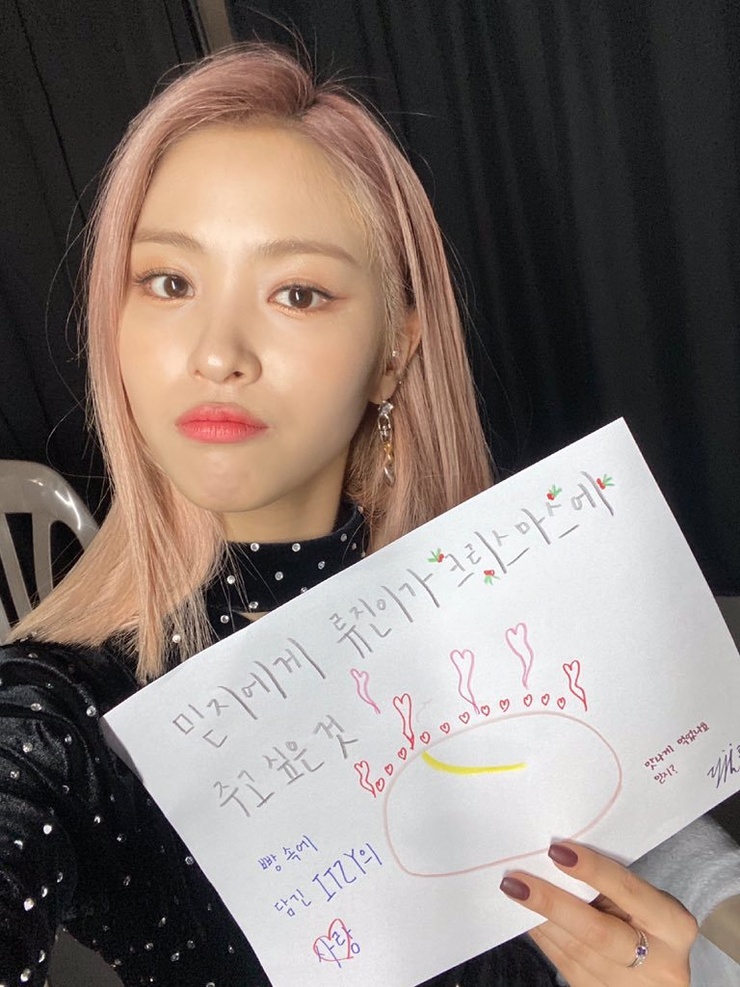 믿지에게 류진이가 크리스마스에
주고 싶은 것
빵 속에
담긴 ITZY의
사랑
맛나게 먹었나요
믿지?